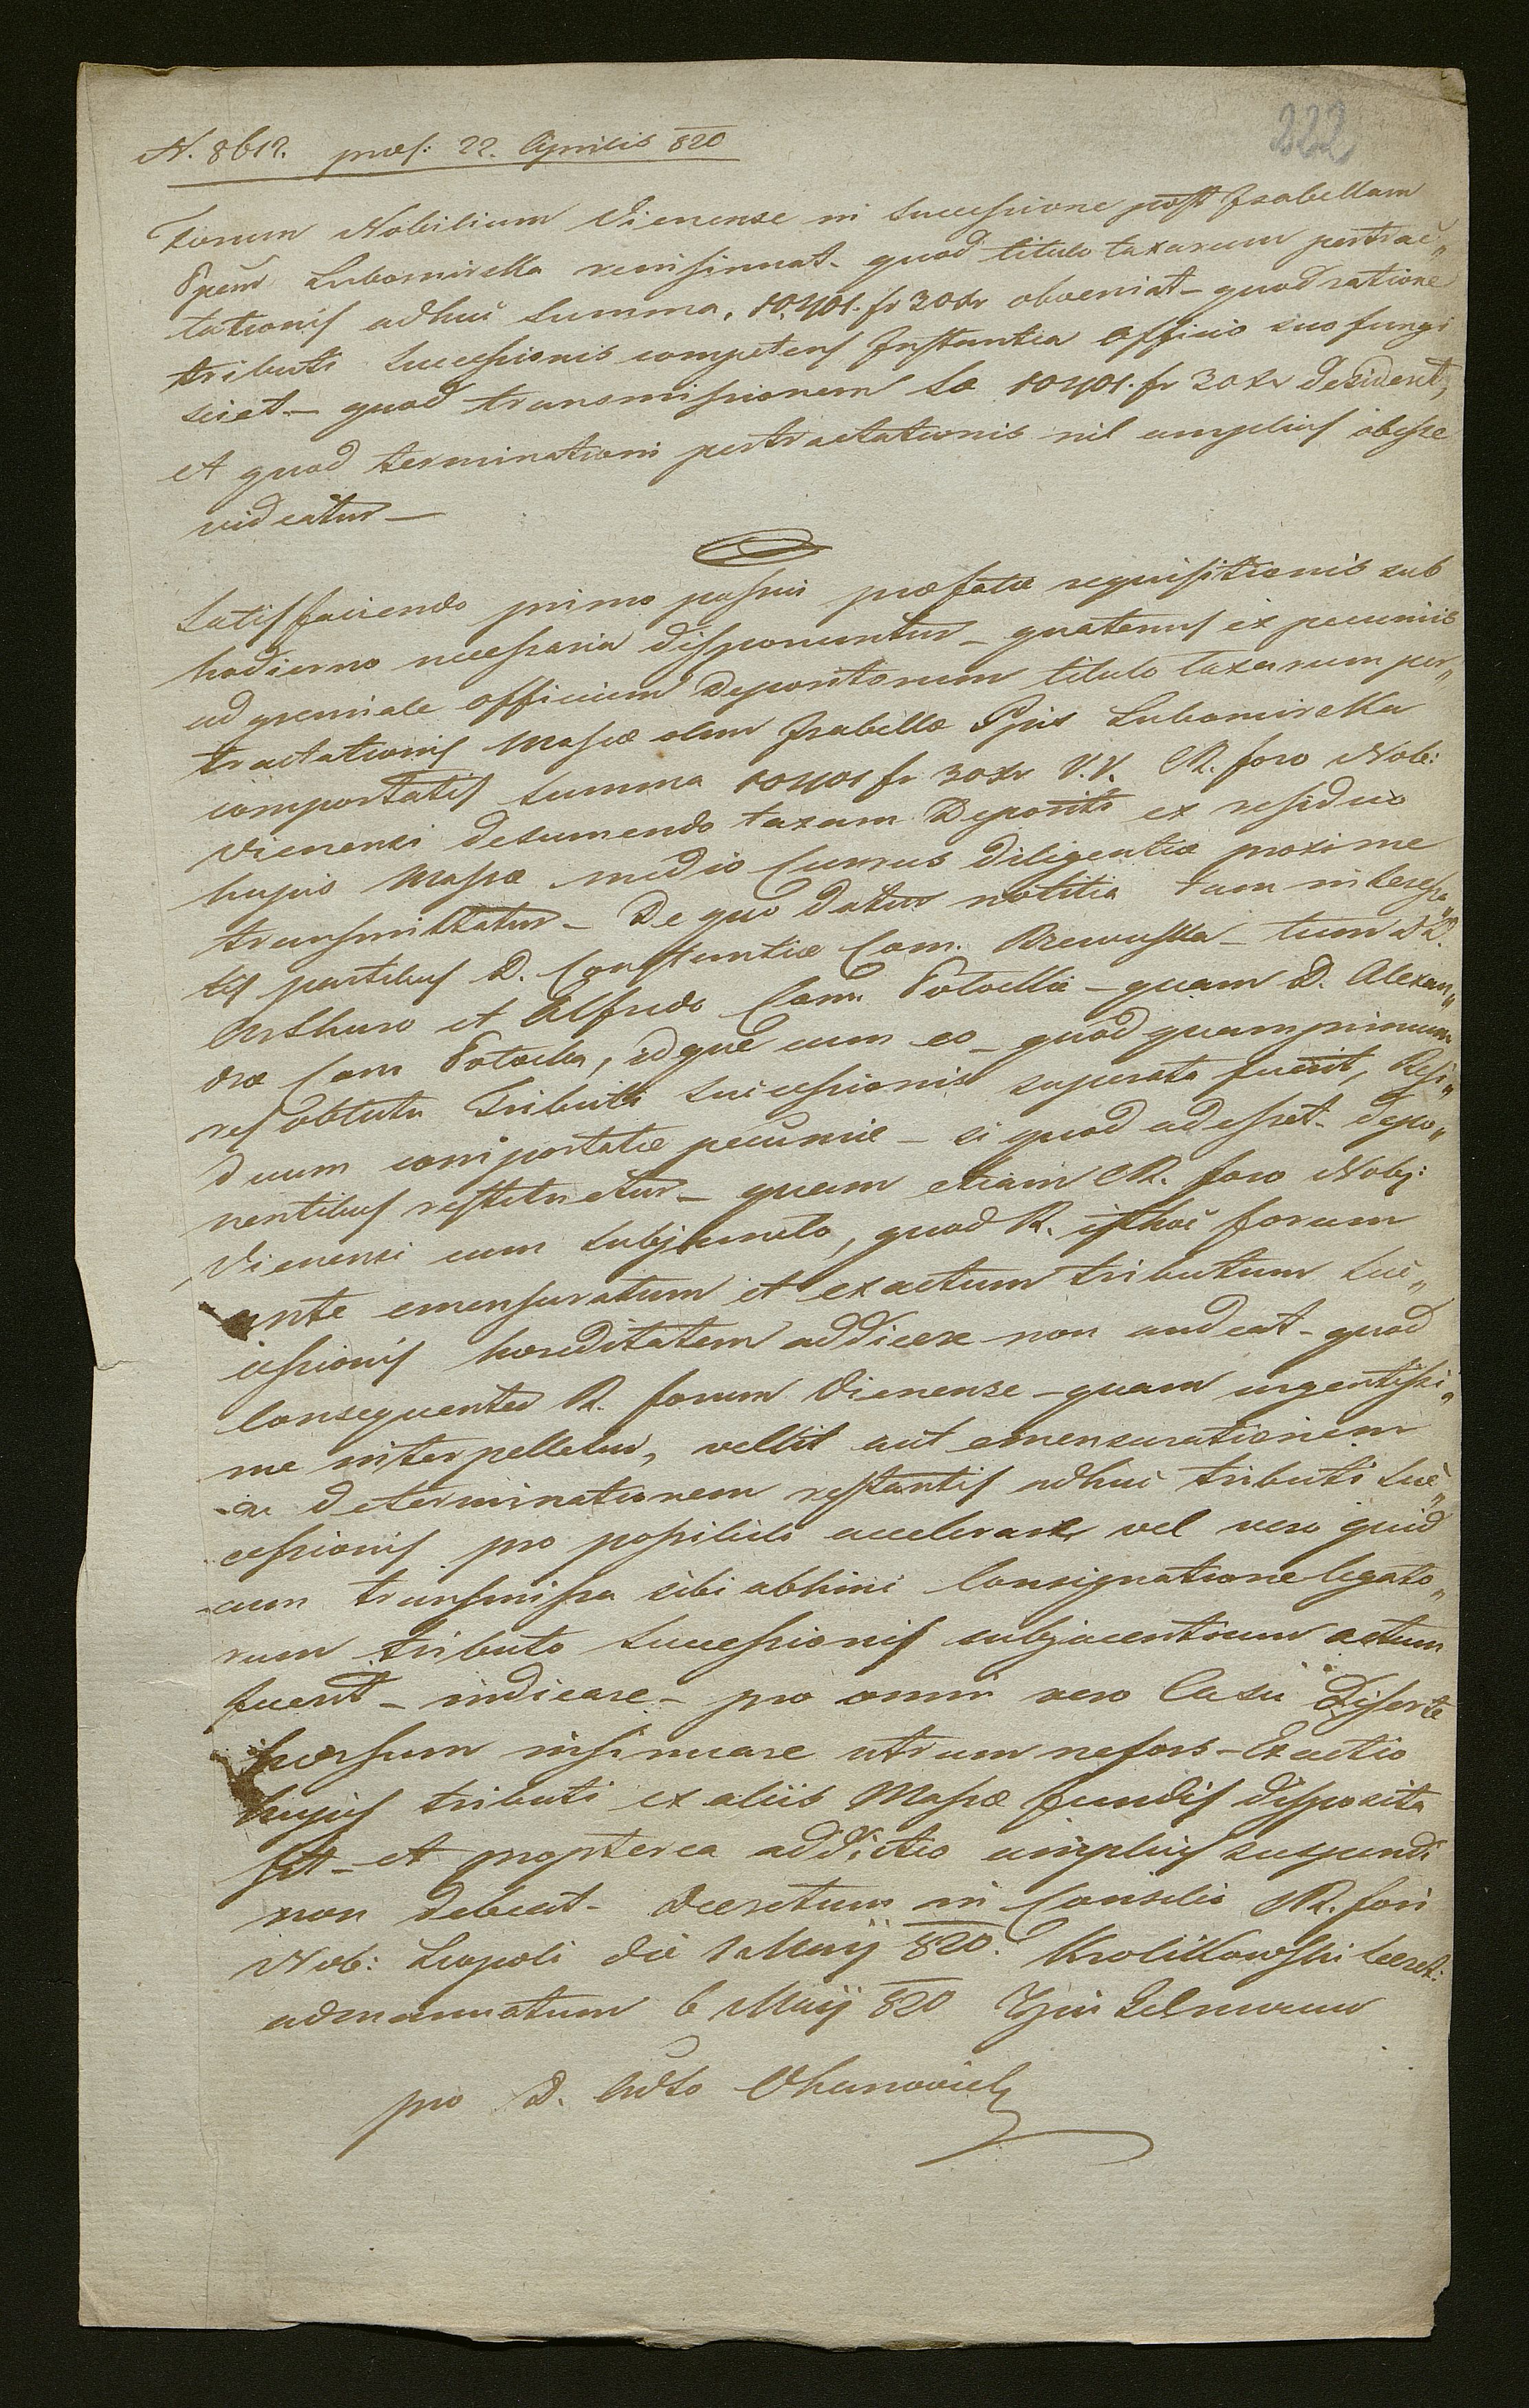 N. 8612. præs: 22. Aprilis 820
222
Forum Nobilium Vienense in successione post Isabellam
Ppem Lubomirska reinsinuat - quod titulo taxarum pertrac„
tationis adhuc summa 10,401. fr 30 xr obveniat - quod ratione
tributi successionis competens Instantia officio suo fungi
sciet - quod transmissionem Sæ 10401. fr 30 xr desideret,
et quod terminationi pertractationis nil amplius obesse
videatur -
Satisfaciendo primo passui præfatæ requisitionis sub
hodierno necessaria disponuntur - quatenus ex pecuniis
ad gremiale officium Depositorum titulo taxarum per„
tractationis Massæ olim Isabellæ Ppis Lubomirska
comportatis summa 10401 fr 30 xr V.V. R. foro Nob:
Vienensi desumendo taxam Depositi ex residuo
hujus Massæ medio Currus diligentiæ proxime
transmittatur - De quo datur notitia tam interessa„
tis partibus D. Constantiæ Com. Rzewuska - tum DD.
Arthuro et Alfredo Com. Potockie - quam D. Alexan„
dræ Com Potocka, idque cum eo - quod quamprimum
res obtutu Tributi successionis superata fuerit, Resi„
duum comportatæ pecuniæ - si quod adesset - depo„
nentibus restituetur - quam etiam R. foro Nob:
Vienensi cum subjuncto, quod R. isthoc forum
ante emensuratum et exactum tributum suc„
cessionis hæreditatem addicere non audeat - quod
consequenter R. forum Vienense - quam urgentissi„
me interpelletur, vellit aut emensurationem
ac determinationem restantis adhuc tributi suc„
cessionis pro possibili accelerare vel vero quid
cum transmissa sibi abhinc Consignatione legato„
rum tributo successionis subjacentium actum
fuerit - indicare - pro omni vero Casu diserte
horsum insinuare utrum nefors - Exactio
hujus tributi ex aliis Massæ fundis disposita
sit - et propterea addictio amplius suspendi
non debeat - Decretum in Consilio R. fori
Nob: Leopoli die 1 Maij 820. Krolikowski Secret:
admanuatum 6 Maij 820
pro D. Adto